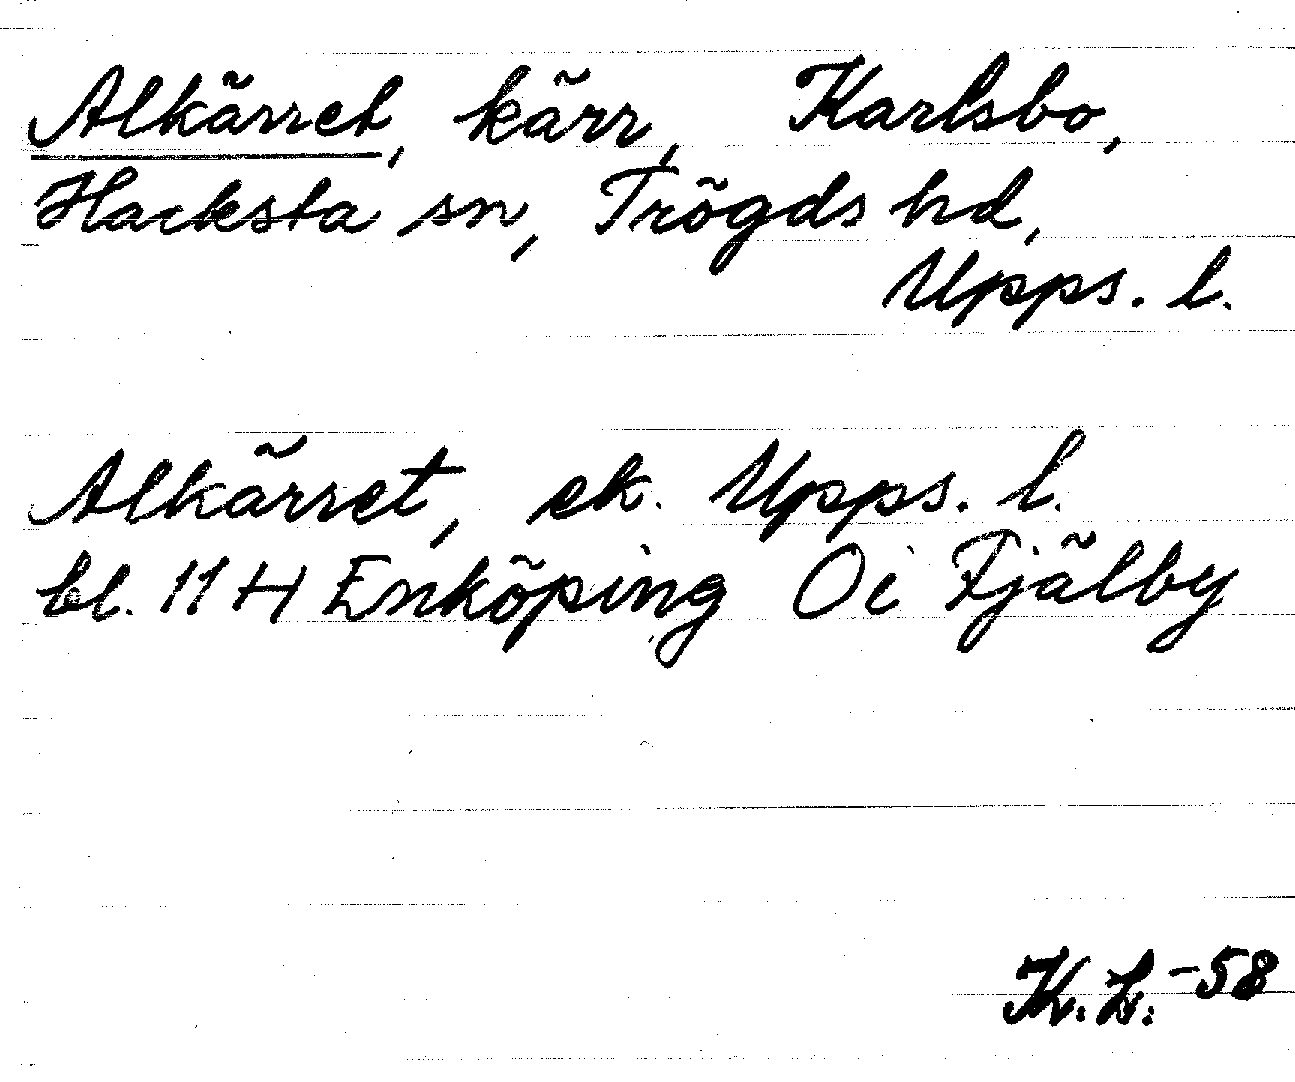 Alkärret, kärr, Karlsbo,
Hacksta sn, Trögds hd,
Upps. l.
Alkärret, ek. Upps. l.
bl. 11 H Enköping Oi Fjälby
K. L. -58